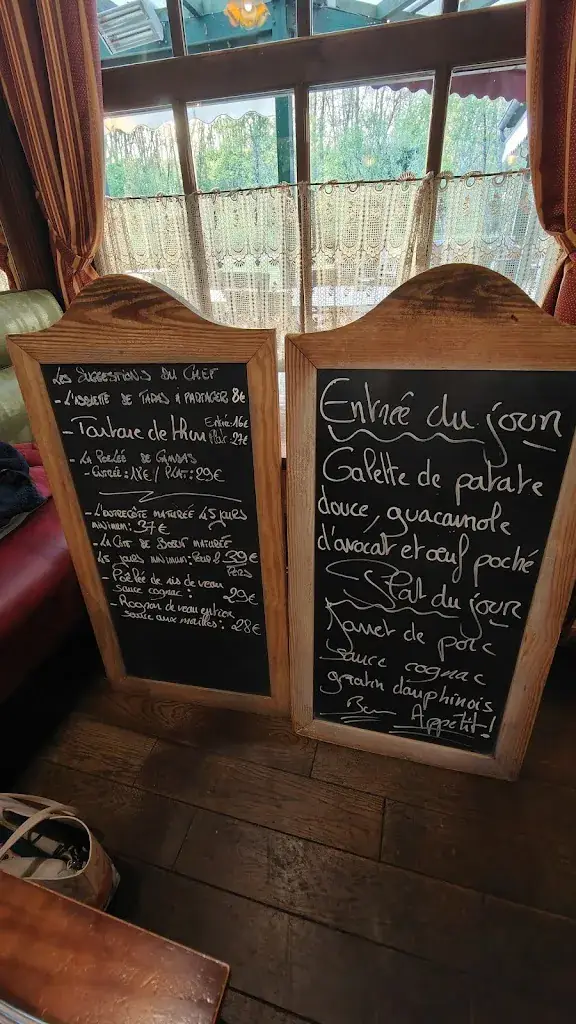 Les Suggestions du Chef
- L'assiette de tapas à partager 8€
- Tartare de thon Entrée: 16€
Plat: 27€
- La poêlée de gambas
- Entrée: 18€ / Plat: 29€
- L'entrecôte maturée 45 jours
minimum: 37€
- La côte de boeuf maturée
45 jours minimum: pour 2 39€
pers
- Poêlée de ris de veau
sauce cognac: 29€
- Rognon de veau entier
sauce aux : 28€
Entrée du jour
Galette de patate
douce, guacamole
d'avocat et oeuf poché
Plat du jour
Jarret de porc
sauce cognac
gratin dauphinois
Bon Appétit!